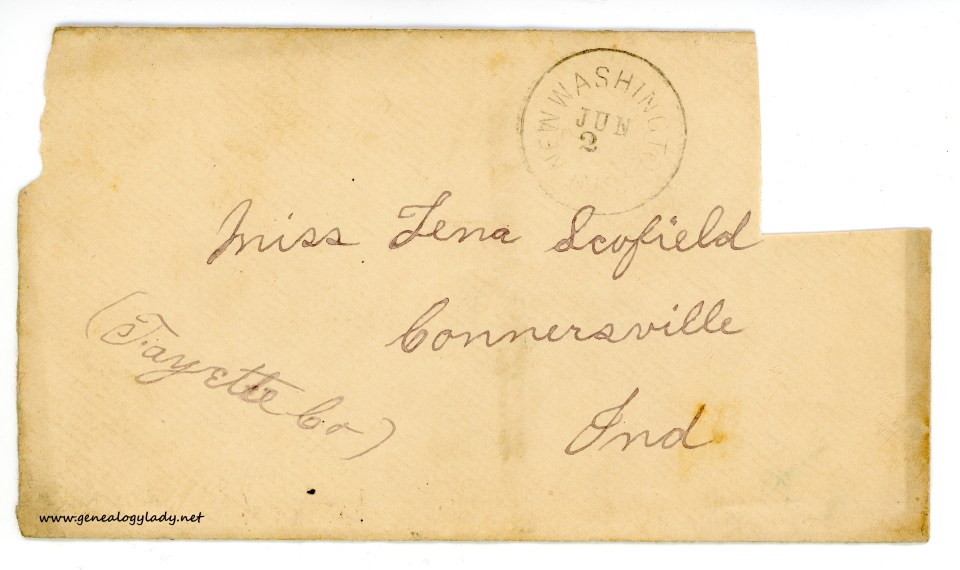 NEW WASHINGT
JUN
2
Miss Lena Scofield
Connersville
(Fayette Co)
Ind
www.genealogylady.net